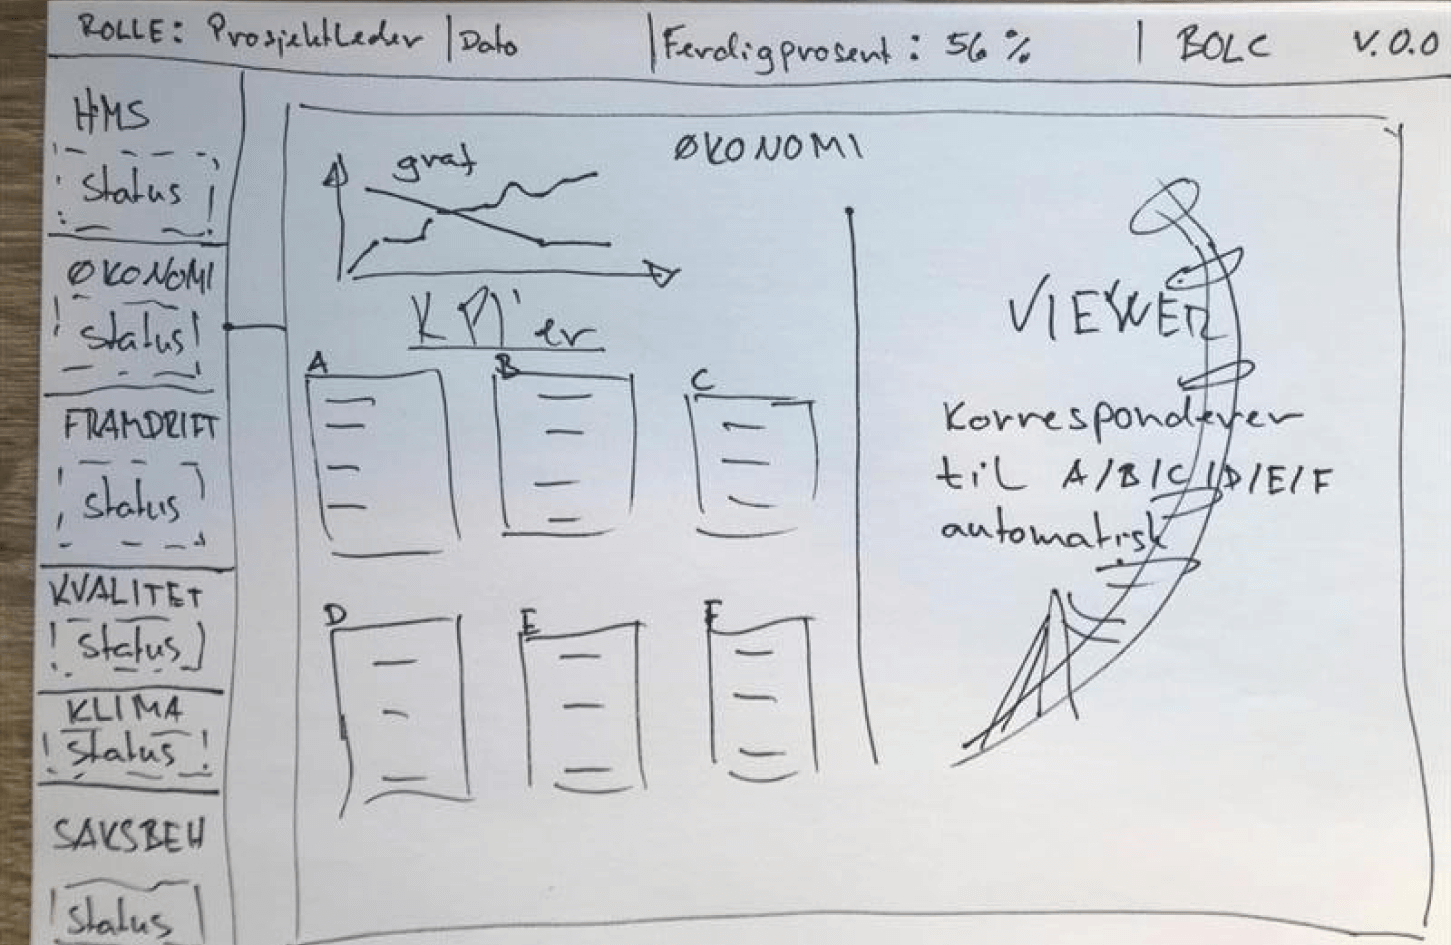 ROLLE: Prosjektleder | Dato | Ferdigprosent: 56 % | BOLC V.0.0
HMS
Status
ØKONOMI
Status
FRAMDRIFT
Status
KVALITET
Status
KLIMA
Status
SAKSBEH
Status
ØKONOMI
graf
KPI'er
A B C
D E F
VIEWER
Korresponderer
til A/B/C/D/E/F
automatisk